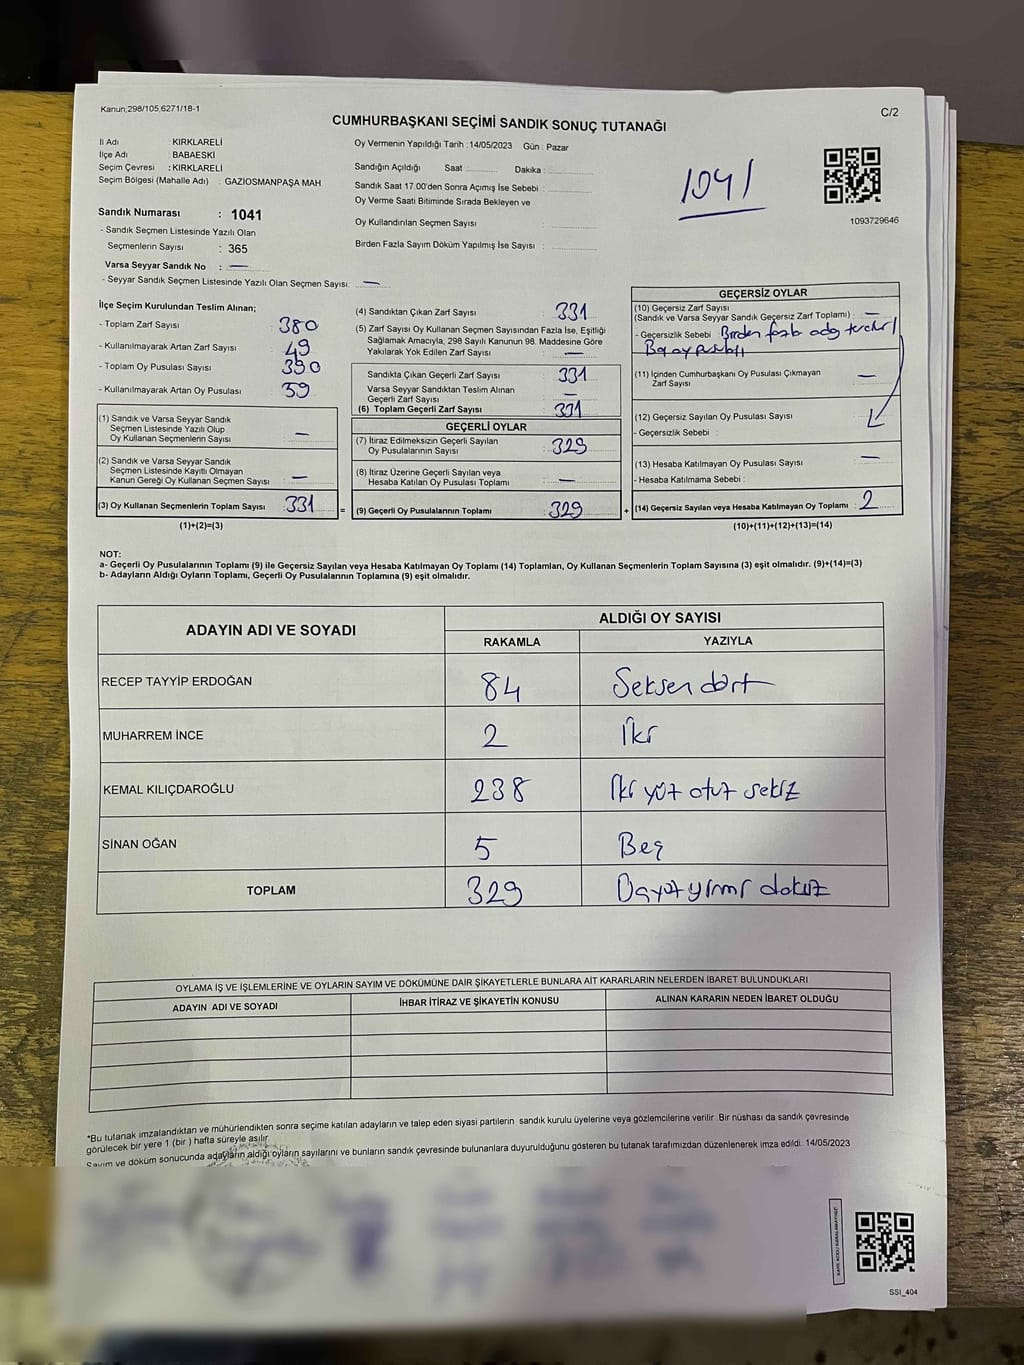 Kanun;298/105,6271/18-1
C/2
CUMHURBAŞKANI SEÇİMİ SANDIK SONUÇ TUTANAĞI
İl Adı KIRKLARELİ
İlçe Adı BABAESKİ
Seçim Çevresi : KIRKLARELİ
Seçim Bölgesi (Mahalle Adı) : GAZİOSMANPAŞA MAH
Sandık Numarası : 1041
- Sandık Seçmen Listesinde Yazılı Olan
Seçmenlerin Sayısı : 365
Varsa Seyyar Sandık No : —
- Seyyar Sandık Seçmen Listesinde Yazılı Olan Seçmen Sayısı: —
Oy Vermenin Yapıldığı Tarih : 14/05/2023 Gün : Pazar
Sandığın Açıldığı Saat Dakika :
Sandık Saat 17.00'den Sonra Açımış İse Sebebi :
Oy Verme Saati Bitiminde Sırada Bekleyen ve
Oy Kullandırılan Seçmen Sayısı :
Birden Fazla Sayım Döküm Yapılmış İse Sayısı :
1041
1093729646
İlçe Seçim Kurulundan Teslim Alınan;
- Toplam Zarf Sayısı : 380
- Kullanılmayarak Artan Zarf Sayısı : 49
- Toplam Oy Pusulası Sayısı : 390
- Kullanılmayarak Artan Oy Pusulası : 59
(1) Sandık ve Varsa Seyyar Sandık
Seçmen Listesinde Yazılı Olup
Oy Kullanan Seçmenlerin Sayısı : —
(2) Sandık ve Varsa Seyyar Sandık
Seçmen Listesinde Kayıtlı Olmayan
Kanun Gereği Oy Kullanan Seçmen Sayısı : —
(3) Oy Kullanan Seçmenlerin Toplam Sayısı : 331
(1)+(2)=(3)
(4) Sandıktan Çıkan Zarf Sayısı : 331
(5) Zarf Sayısı Oy Kullanan Seçmen Sayısından Fazla İse, Eşitliği
Sağlamak Amacıyla, 298 Sayılı Kanunun 98. Maddesine Göre
Yakılarak Yok Edilen Zarf Sayısı : —
Sandıkta Çıkan Geçerli Zarf Sayısı : 331
Varsa Seyyar Sandıktan Teslim Alınan
Geçerli Zarf Sayısı : —
(6) Toplam Geçerli Zarf Sayısı : 331
GEÇERLİ OYLAR
(7) İtiraz Edilmeksizin Geçerli Sayılan
Oy Pusulalarının Sayısı : 329
(8) İtiraz Üzerine Geçerli Sayılan veya
Hesaba Katılan Oy Pusulası Toplamı : —
= (9) Geçerli Oy Pusulalarının Toplamı : 329
GEÇERSİZ OYLAR
(10) Geçersiz Zarf Sayısı
(Sandık ve Varsa Seyyar Sandık Geçersiz Zarf Toplamı) : —
- Geçersizlik Sebebi : Birden fazla aday tercihi /
Boş oy pusulası
(11) İçinden Cumhurbaşkanı Oy Pusulası Çıkmayan
Zarf Sayısı : —
(12) Geçersiz Sayılan Oy Pusulası Sayısı :
- Geçersizlik Sebebi :
(13) Hesaba Katılmayan Oy Pusulası Sayısı : —
- Hesaba Katılmama Sebebi :
+ (14) Geçersiz Sayılan veya Hesaba Katılmayan Oy Toplamı : 2
(10)+(11)+(12)+(13)=(14)
NOT:
a- Geçerli Oy Pusulalarının Toplamı (9) ile Geçersiz Sayılan veya Hesaba Katılmayan Oy Toplamı (14) Toplamları, Oy Kullanan Seçmenlerin Toplam Sayısına (3) eşit olmalıdır. (9)+(14)=(3)
b- Adayların Aldığı Oyların Toplamı, Geçerli Oy Pusulalarının Toplamına (9) eşit olmalıdır.
ADAYIN ADI VE SOYADI ALDIĞI OY SAYISI
RAKAMLA YAZIYLA
RECEP TAYYİP ERDOĞAN 84 Seksen dört
MUHARREM İNCE 2 İki
KEMAL KILIÇDAROĞLU 238 İki yüz otuz sekiz
SİNAN OĞAN 5 Beş
TOPLAM 329 Üçyüz yirmi dokuz
OYLAMA İŞ VE İŞLEMLERİNE VE OYLARIN SAYIM VE DÖKÜMÜNE DAİR ŞİKAYETLERLE BUNLARA AİT KARARLARIN NELERDEN İBARET BULUNDUKLARI
ADAYIN ADI VE SOYADI İHBAR İTİRAZ VE ŞİKAYETİN KONUSU ALINAN KARARIN NEDEN İBARET OLDUĞU
*Bu tutanak imzalandıktan ve mühürlendikten sonra seçime katılan adayların ve talep eden siyasi partilerin sandık kurulu üyelerine veya gözlemcilerine verilir. Bir nüshası da sandık çevresinde
görülecek bir yere 1 (bir ) hafta süreyle asılır.
Sayım ve döküm sonucunda adayların aldığı oyların sayılarını ve bunların sandık çevresinde bulunanlara duyurulduğunu gösteren bu tutanak tarafımızdan düzenlenerek imza edildi. 14/05/2023
SSI_404